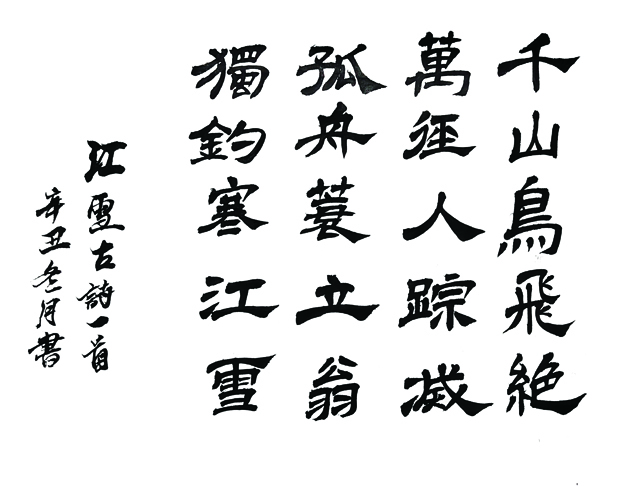 千山鳥飛絕
萬徑人踪滅
孤舟蓑立翁
獨釣寒江雪
江雪古詩一首
辛丑冬月書